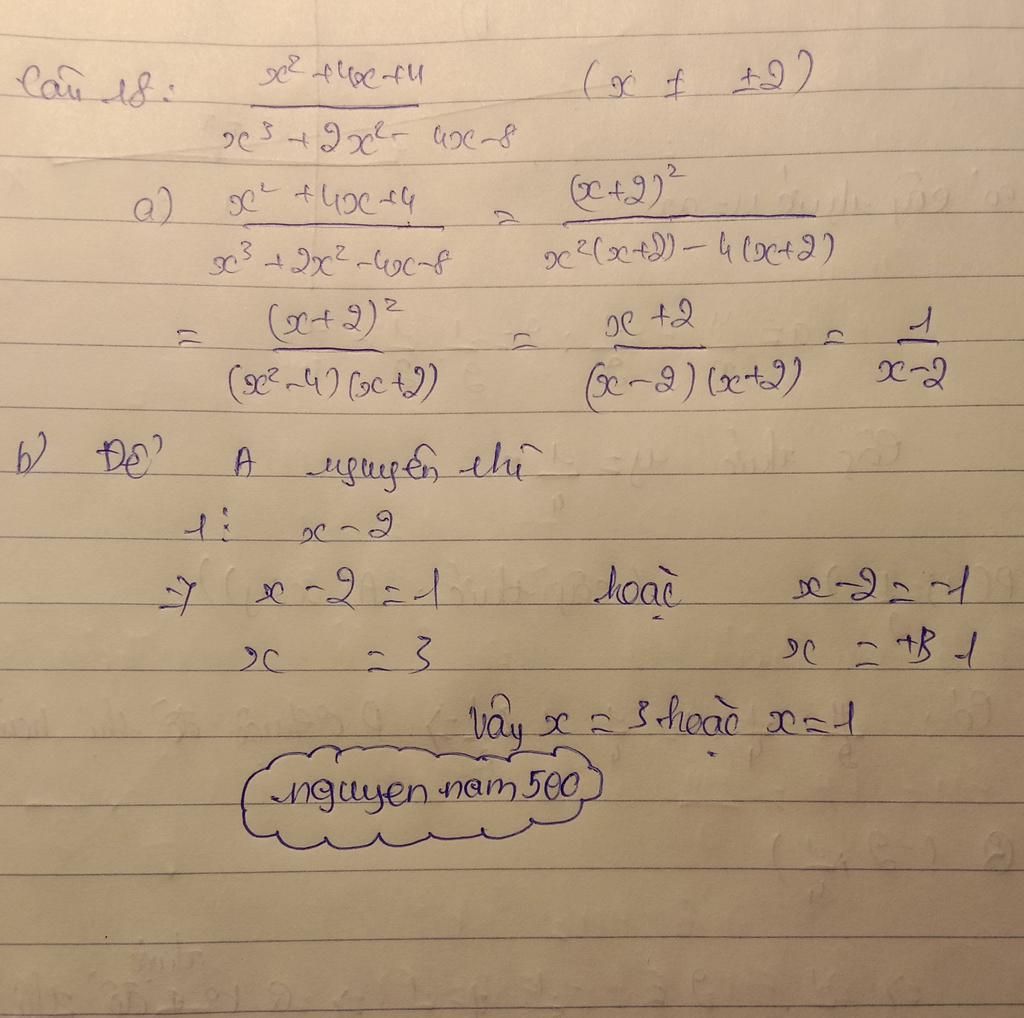 Câu 18: \frac{x² + 4x + 4}{x³ + 2x² - 4x - 8} (x ≠ ±2)
a) \frac{x² + 4x + 4}{x³ + 2x² - 4x - 8} = \frac{(x+2)²}{x²(x+2) - 4(x+2)}
= \frac{(x+2)²}{(x²-4)(x+2)} = \frac{x+2}{(x-2)(x+2)} = \frac{1}{x-2}
b) Để A nguyên thì
1 ⋮ x - 2
=> x - 2 = 1 hoặc x - 2 = -1
x = 3 x = 1
Vậy x = 3 hoặc x = 1
nguyen nam 500